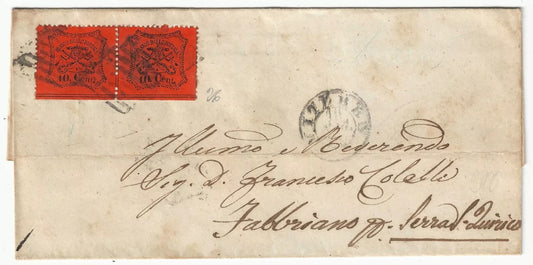 10. Cent. 10. Cent.
26
Illumo e Reverendo
Sig. D. Francesco
Fabbriano p. Serra S. Quirico